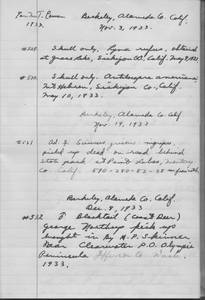 1933.
Berkeley, Alameda Co. Calif.
Nov. 3, 1933.
Skull only, Lynx rufus, obtained
at Grass Lake, Siskiyou Co., Calif. May 9, 1933.
Skull only. Antilocapra americana
Mt Hebron, Siskiyou Co., Calif.
May 10, 1933.
Berkeley, Alameda Co. Calif.
Nov. 14, 1933.
Ad. ♂ Sciurus griseus nigripes
picked up dead on road behind
state park at Point Lobos, Monterey
Co. Calif. 590-280-82-35
Berkeley, Alameda Co. Calif.
Dec. 9, 1933.
♂ Blacktail (coast Deer)
George Northrup pick up
brought in by M. P. Skinner
Near Clearwater P.O. Olympic
Peninsula Jefferson Co. Wash.
1933.